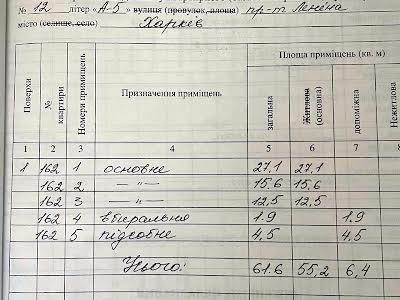 № 12 літер «А-5» вулиця (провулок, площа) пр-т Леніна
місто (селище, село) Харків
Поверхи № квартири Номери приміщень Призначення приміщень Площа приміщень (кв. м)
загальна Житлова (основна) допоміжна Нежитлова
1 2 3 4 5 6 7 8
1 162 1 основне 27,1 27,1
162 2 — " — 15.6 15,6
162 3 — " — 12,5 12,5
162 4 вбиральня 1.9 1.9
162 5 підсобне 4,5 4.5
Усього: 61.6 55,2 6,4